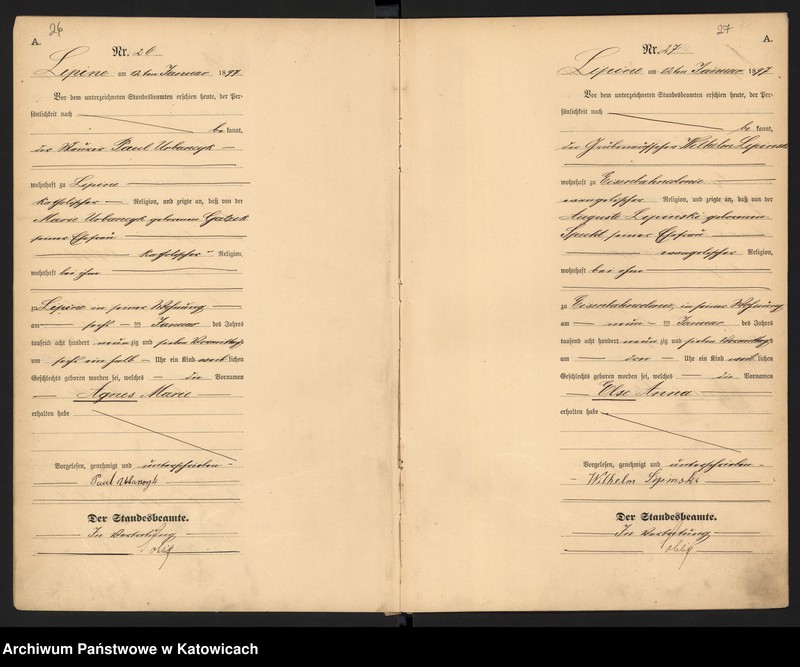 26
A.
Nr. 26
Lipine am 12ten Januar 1897
Vor dem unterzeichneten Standesbeamten erschien heute, der Per-
sönlichkeit nach
be kannt,
der Maurer Paul Urbanczyk
wohnhaft zu Lipine
katholischer Religion, und zeigte an, daß von der
Marie Urbanczyk geborenen
seiner Ehefrau
katholischer Religion,
wohnhaft bei ihm
zu Lipine in seiner Wohnung
am sechs ten Januar des Jahres
tausend acht hundert neun zig und sieben Vormittags
um sechs ein halb Uhr ein Kind weib lichen
Geschlechts geboren worden sei, welches die Vornamen
Agnes Marie
erhalten habe
Vorgelesen, genehmigt und unterschrieben
Paul
Der Standesbeamte.
In Vertretung
27
A.
Nr. 27
Lipine am 12ten Januar 1897
Vor dem unterzeichneten Standesbeamten erschien heute, der Per-
sönlichkeit nach
be kannt,
der Wilhelm Lipinski
wohnhaft zu Eisenbahncolonie
evangelischer Religion, und zeigte an, daß von der
Auguste Lipinski geborenen
Specht seiner Ehefrau
evangelischer Religion,
wohnhaft bei ihm
zu Eisenbahncolonie, in seiner Wohnung
am neun ten Januar des Jahres
tausend acht hundert neun zig und sieben Vormittags
um Uhr ein Kind weib lichen
Geschlechts geboren worden sei, welches die Vornamen
Else Anna
erhalten habe
Vorgelesen, genehmigt und unterschrieben
Wilhelm Lipinski
Der Standesbeamte.
In Vertretung
Archiwum Państwowe w Katowicach